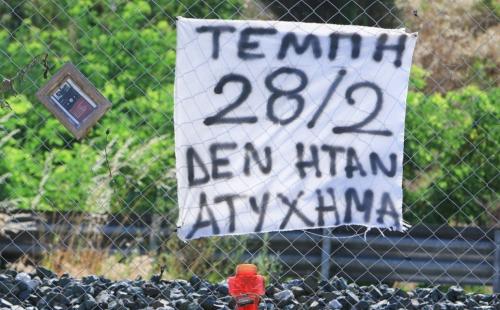 ΤΕΜΠΗ
28/2
ΔΕΝ ΗΤΑΝ
ΑΤΥΧΗΜΑ